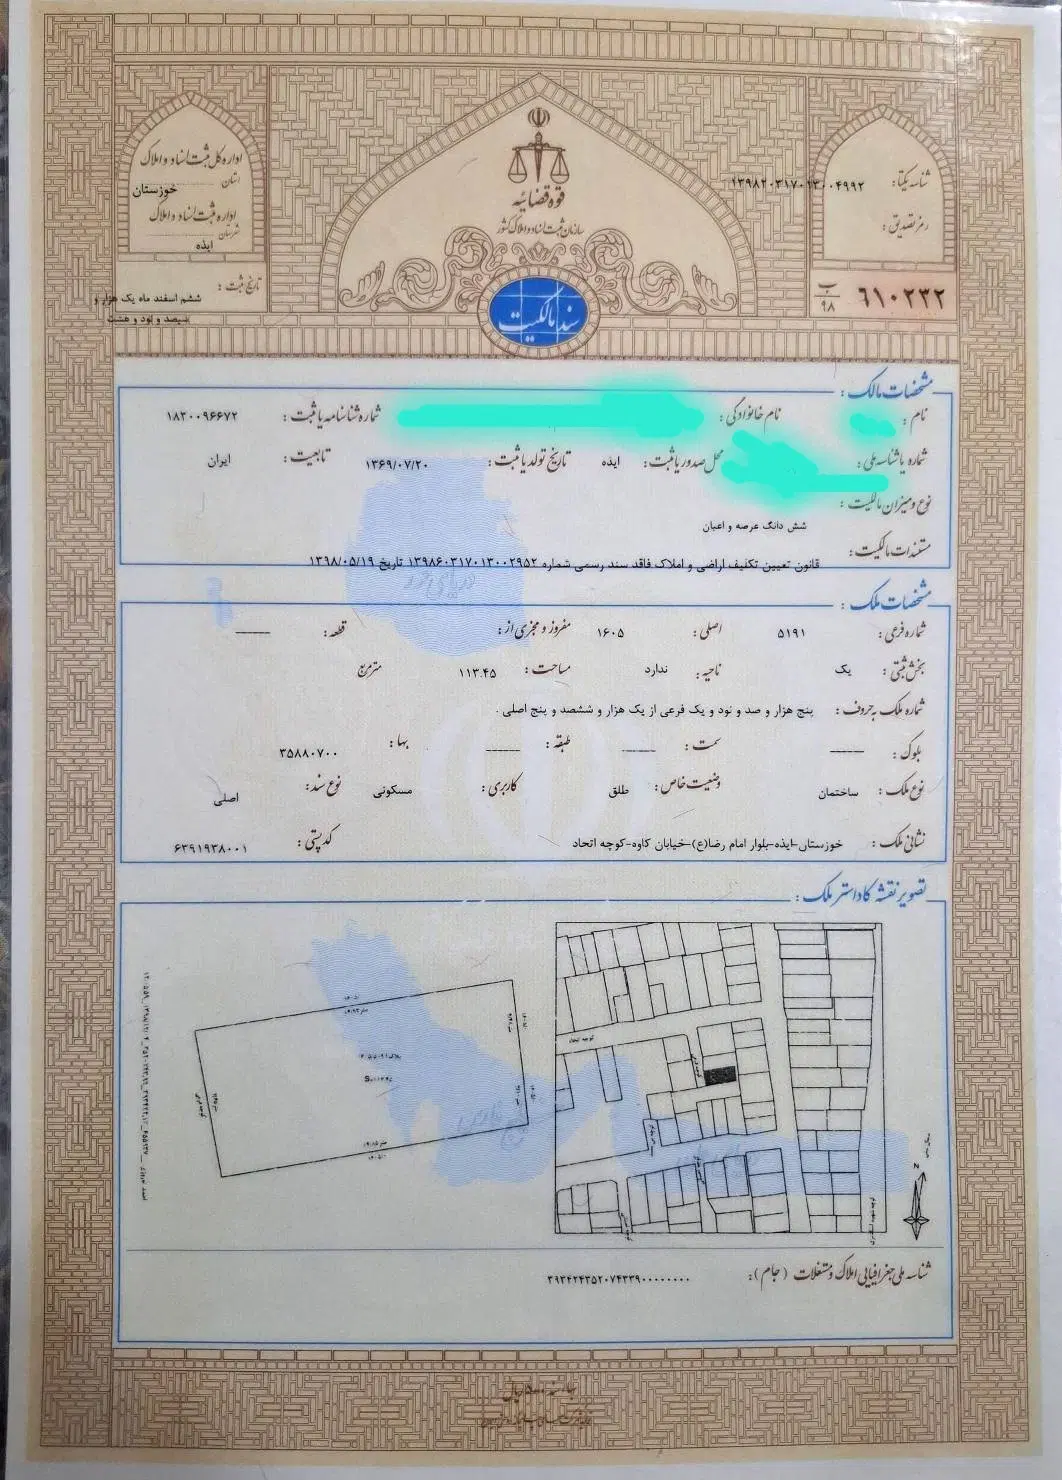 قوه قضائیه
سازمان ثبت اسناد و املاک کشور
سند مالکیت
شناسه یکتا:
رمز تصدیق:
۶۱۰۲۳۲ ب/۹۸
اداره کل ثبت اسناد و املاک
استان خوزستان
اداره ثبت اسناد و املاک
شهرستان ایذه
تاریخ ثبت: ششم اسفند ماه یک هزار و
سیصد و نود و هشت
مشخصات مالک:
نام: نام خانوادگی: شماره شناسنامه یا ثبت: ۱۸۲۰۰۹۶۶۷۲
شماره یا شناسه ملی: محل صدور یا ثبت: ایذه تاریخ تولد یا ثبت: ۱۳۶۹/۰۷/۲۰ تابعیت: ایران
نوع و میزان مالکیت:
شش دانگ عرصه و اعیان
مستندات مالکیت:
قانون تعیین تکلیف اراضی و املاک فاقد سند رسمی شماره ۱۳۹۸۶۰۳۱۷۰۱۳۰۰۲۹۵۲ تاریخ ۱۳۹۸/۰۵/۱۹
دریای خزر
مشخصات ملک:
شماره فرعی: ۵۱۹۱ اصلی: ۱۶۰۵ مفروز و مجزی از: قطعه: ــــــ
بخش ثبتی: یک ناحیه: ندارد مساحت: ۱۱۳.۴۵ مترمربع
شماره ملک به حروف: پنج هزار و صد و نود و یک فرعی از یک هزار و ششصد و پنج اصلی .
بلوک: ــــــ سمت: ــــــ طبقه: ــــــ بها: ۳۵۸۸۰۷۰۰
نوع ملک: ساختمان وضعیت خاص: طلق کاربری: مسکونی نوع سند: اصلی
نشانی ملک: خوزستان-ایذه-بلوار امام رضا(ع)-خیابان کاوه-کوچه اتحاد کد پستی: ۶۳۹۱۹۳۸۰۰۱
تصویر نقشه کاداستر ملک:
خلیج فارس
N
شناسه ملی جغرافیایی املاک و مستغلات (جام): ۳۹۳۴۲۴۳۵۲۰۷۴۳۳۹۰۰۰۰۰۰۰۰۰